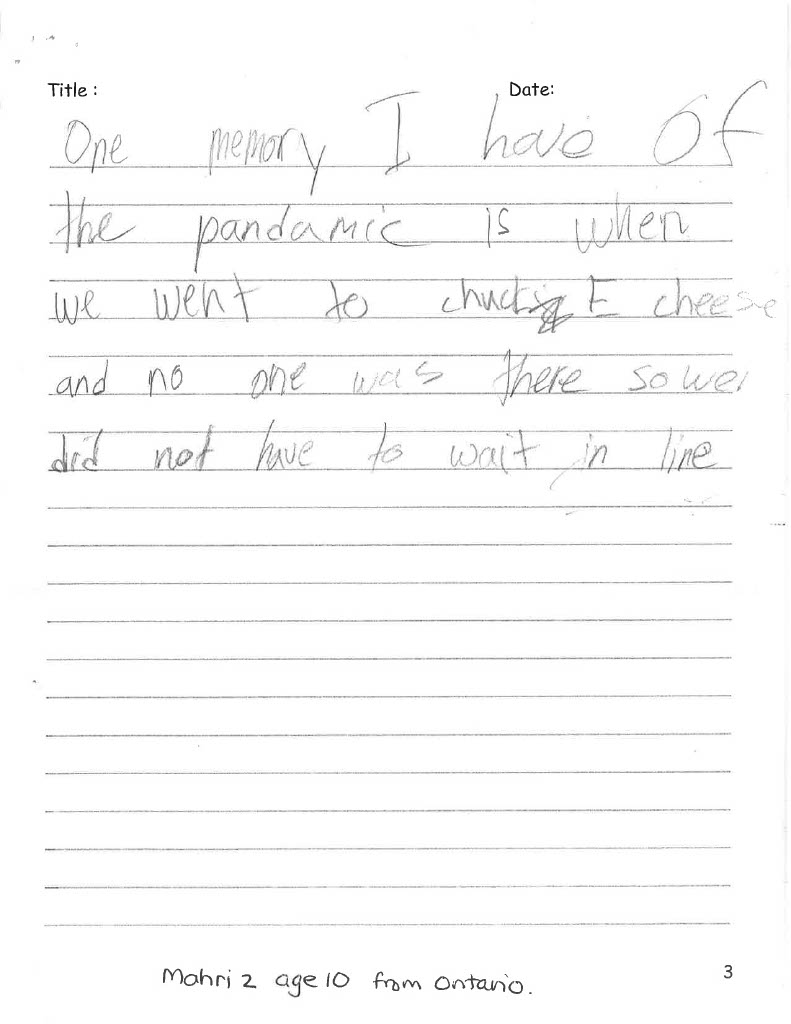 Title : Date:
One memory I have of
the pandamic is when
we went to chuck E cheese
and no one was there so we
did not have to wait in line
Mahri z age 10 from Ontario.
3